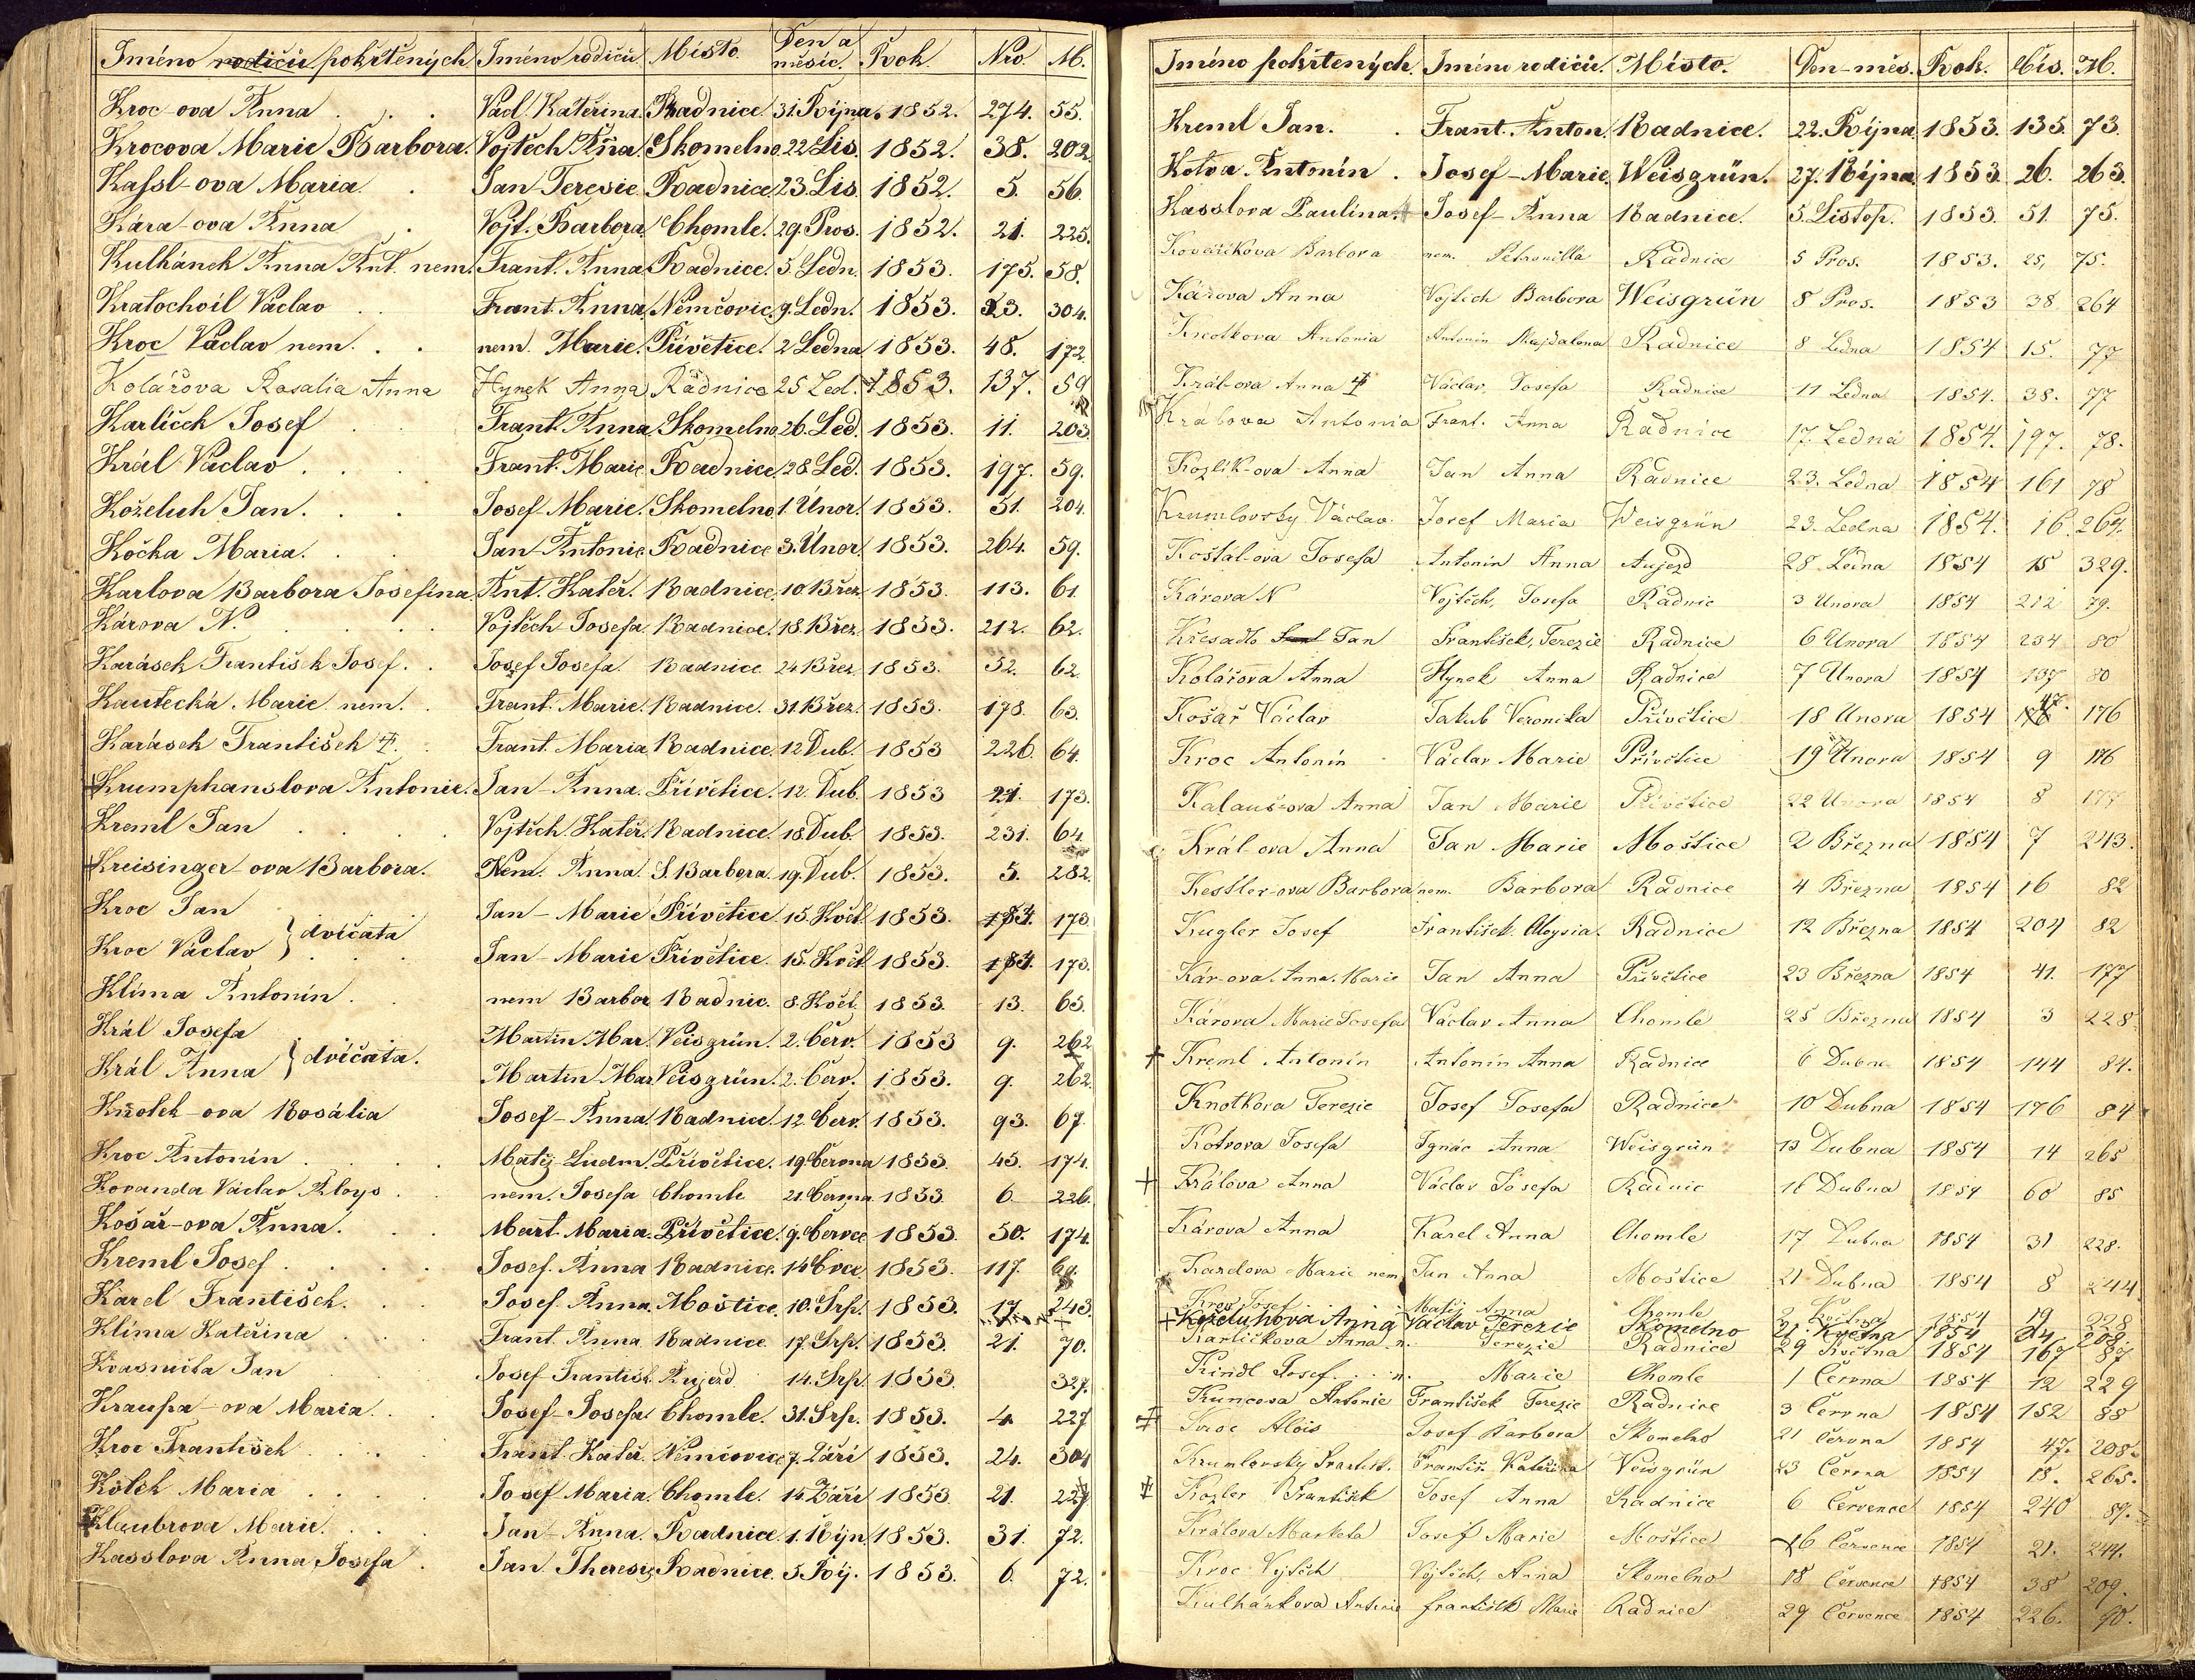 Jméno rodičů pokřtěných Jméno rodičů Místo Den a měsíc. Rok Nro. M.
Kroc-ova Anna Václ. Kateřina. Radnice 31. Října. 1852. 274. 55.
Krocova Marie Barbora. Vojtěch Aña. Skomelno 22 Lis. 1852. 38. 202.
Kassl-ova Maria. Jan Teresie Radnice 23. Lis. 1852. 5. 56.
Kára-ova Anna Vojt. Barbora. Chomle. 29. Pros. 1852. 21. 225.
Kulhánek Anna Ant. nem. Frant. Anna Radnice. 5. Ledn. 1853. 175. 58.
Kratochvíl Václav Frant. Anna Němčovic. 9. Ledn. 1853. 23. 304.
Kroc Václav nem. nem. Marie. Přívětice. 2 Ledna 1853. 48. 172.
Kolářova Rosalia Anna Hynek Anna Radnice 25 Led. 1853. 137. 59
Karlíček Josef Frant. Anna Skomelno 26. Led. 1853. 11. 203.
Král Václav Frant. Marie Radnice 28. Led. 1853. 197. 59.
Koželuh Jan. Josef Marie. Skomelno 1. Únor. 1853. 31. 204.
Kočka Maria. Jan Antonie Radnice 3. Únor. 1853. 264. 59.
Karlova Barbora Josefína. Ant. Kateř. Radnice. 10. Břez. 1853. 113. 61.
Károva N. Vojtěch Josefa Radnice. 18. Břez. 1853. 212. 62.
Karásek František Josef. Josef Josefa. Radnice 24 Břez. 1853. 32. 62.
Kautecká Marie nem. Frant. Marie. Radnice. 31. Břez. 1853. 178. 63.
Karásek František Frant. Maria Radnice. 12. Dub. 1853 226. 64.
Krumphanslova Antonie. Jan-Anna. Přívětice. 12. Dub. 1853 21. 173.
Kreml Jan Vojtěch. Kateř. Radnice. 18. Dub. 1853. 231. 64
Kreisinger-ova Barbora. Nem. Anna S. Barbora. 19. Dub. 1853. 5. 282.
Kroc Jan } dvíčata Jan-Marie Přívětice 15. Květ. 1853. 173.
Kroc Václav Jan-Marie Přívětice. 15. Květ. 1853. 173.
Klíma Antonín. nem Barbor Radnic. 8. Květ. 1853. 13. 65.
Král Josefa } dvíčata. Martin. Mar. Veisgrün. 2. Červ. 1853 9. 262
Král Anna Martin Mar. Veisgrün. 2. Červ. 1853. 9. 262.
Knotek-ova Rosália Josef-Anna. Radnice. 12. Červ. 1853. 93. 67.
Kroc Antonín Matěj Ludm. Přívětice. 19. Června 1853. 45. 174.
Kovanda Václav Aloys. nem. Josefa Chomle 21. Června 1853. 6. 226.
Košař-ova Anna. Mart. Maria. Přívětice. 9. Červce 1853. 50. 174.
Kreml Josef Josef. Anna Radnice. 14. Črce. 1853. 117. 69.
Karel František. Josef Anna. Moštice. 10. Srp. 1853. 17. 243.
Klíma Kateřina Frant. Anna Radnice. 17. Srp. 1853. 21. 70.
Kvasnička Jan Josef Františk. Aujezd 14. Srp. 1853. 327.
Kraupa-ova Maria. Josef-Josefa. Chomle. 31. Srp. 1853. 4. 227
Kroc František Frant. Kateř. Němčovice 7. Září 1853. 24. 304
Kotek Maria Josef Maria. Chomle. 14. Září 1853. 21. 227
Klaubrova Marie. Jan-Anna. Radnice. 1. Říjn. 1853. 31. 72.
Kasslova Anna Josefa. Jan Theresie Radnice. 5. Říj. 1853. 6. 72.
Jméno pokřtených. Jméno rodičů. Místo. Den-měs. Rok. Čís. M.
Kreml Jan. Frant. Anton. Radnice. 22. Října. 1853. 135. 73.
Kotva Antonín. Josef-Marie. Weisgrün. 27. Října. 1853. 26. 263.
Kasslova Paulína. Josef-Anna Radnice. 5. Listop. 1853. 51. 75.
Kovaříkova Barbora nem. Petronilla Radnice 5 Pros. 1853. 25, 75.
Károva Anna Vojtěch Barbora Weisgrün 8 Pros. 1853 38 264
Knotkova Antonia Antonín Majdalena Radnice 8 Ledna 1854 15. 77
Král-ova Anna Václav, Josefa Radnice 11 Ledna 1854. 38. 77
Kralova Antonia Frant. Anna Radnice 17. Ledna 1854. 197. 78.
Kozlík-ova Anna Jan Anna Radnice 23. Ledna 1854 161 78
Krumlovsky Václav. Josef Maria Weisgrün 23. Ledna 1854. 16. 264.
Košťal-ova Josefa Antonín Anna Aujezd 28 Ledna 1854 15 329.
Károva N Vojtěch, Josefa Radnic 3 Unora 1854 212 79.
Křesadlo Jan František, Terezie Radnice 6 Unora 1854 234 80
Kolářova Anna Hynek Anna Radnice 7 Unora 1854 137 80
Košař Václav Jakub Veronika Přívětice 18 Unora 1854 47. 176
Kroc Antonín Václav Marie Přívětice 19 Unora 1854 9 176
Kalauš-ova Anna Jan Marie Přívětice 22 Unora 1854 8 177
Král-ova Anna Jan Marie Moštice 2 Března 1854 7 243.
Kestler-ova Barbora nem. Barbora Radnice 4 Března 1854 16 82
Kugler Josef František. Aloysia. Radnice 12 Března 1854 204 82
Kár-ova. Anna. Marie Jan Anna Přívětice 23 Března 1854 41. 177
Károva Marie Josefa Václav Anna Chomle 25 Března 1854 3 228
Kreml Antonín Antonín Anna Radnice 6 Dubna 1854 144 84.
Knotkova Terezie Josef Josefa Radnice 10 Dubna 1854 176 84
Kotvova Josefa Ignác Anna Weisgrün 13 Dubna 1854 14 265
Králova Anna Václav Josefa Radnic 16 Dubna 1854 60 85
Károva Anna Karel Anna Chomle 17 Dubna 1854 31 228.
Karelova Marie nem Jan Anna Moštice 21 Dubna 1854 8 244
Kroc Josef Matěj Anna Chomle 2 Května 1854 19 228
Koželuhova Anna Václav Terezie Skomelno 21. Května 1854 24. 208.
Karličkova Anna n. Terezie Radnice 29 Května 1854 167 87
Kindl Josef n. Marie Chomle 1 Června 1854 12 229
Kuncova Antonie František Terezie Radnice 3 Června 1854 152 88
Kroc Alois Josef Barbora Skomelno 21 Června 1854 47. 208.
Krumlovsky Frantisk. Františ. Kateřina Veisgrün 23 Června 1854 18. 265.
Kozler František Josef Anna Radnice 6 Července 1854 240 89.
Králova Marketa Josef Marie Moštice 16 Července 1854 21. 244.
Kroc Vojtěch Vojtěch, Anna Skomelno 18 Července 1854 38 209.
Kulhánkova Antonie františk Marie Radnice 29 Července 1854 226. 90.